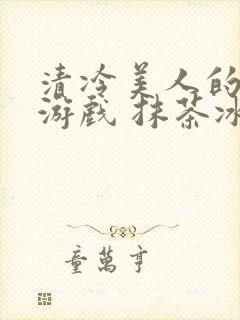 清冷美人的
游戏 抹茶冰
童万亨